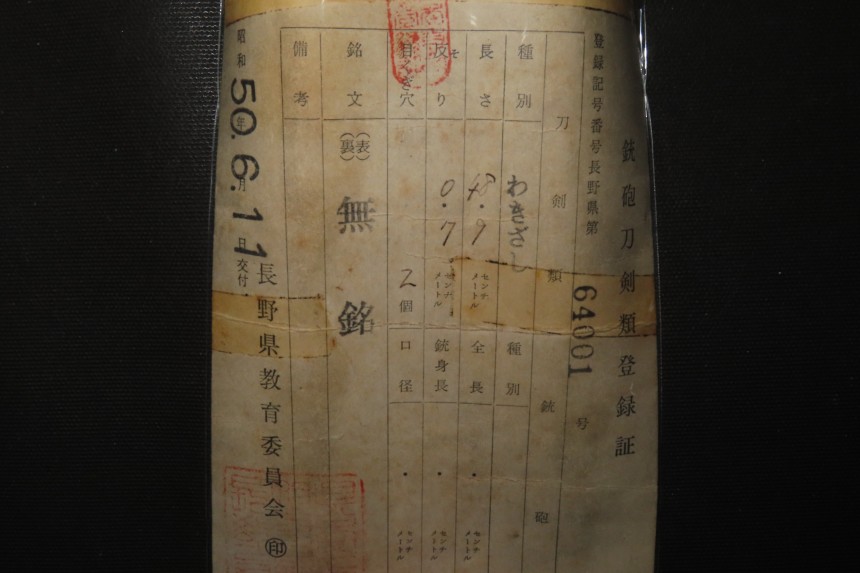 銃砲刀剣類登録証
登録記号番号長野県第 64001 号
刀剣類 銃砲
種別 わきざし 種別
長さ 48.9 センチメートル 全長 ・ センチメートル
反り そ 0.7 センチメートル 銃身長 ・ センチメートル
目くぎ穴 2個 口径 ・ センチメートル
銘文 (表)(裏) 無銘
備考
昭和50年6月11日交付
長野県教育委員会 ㊞